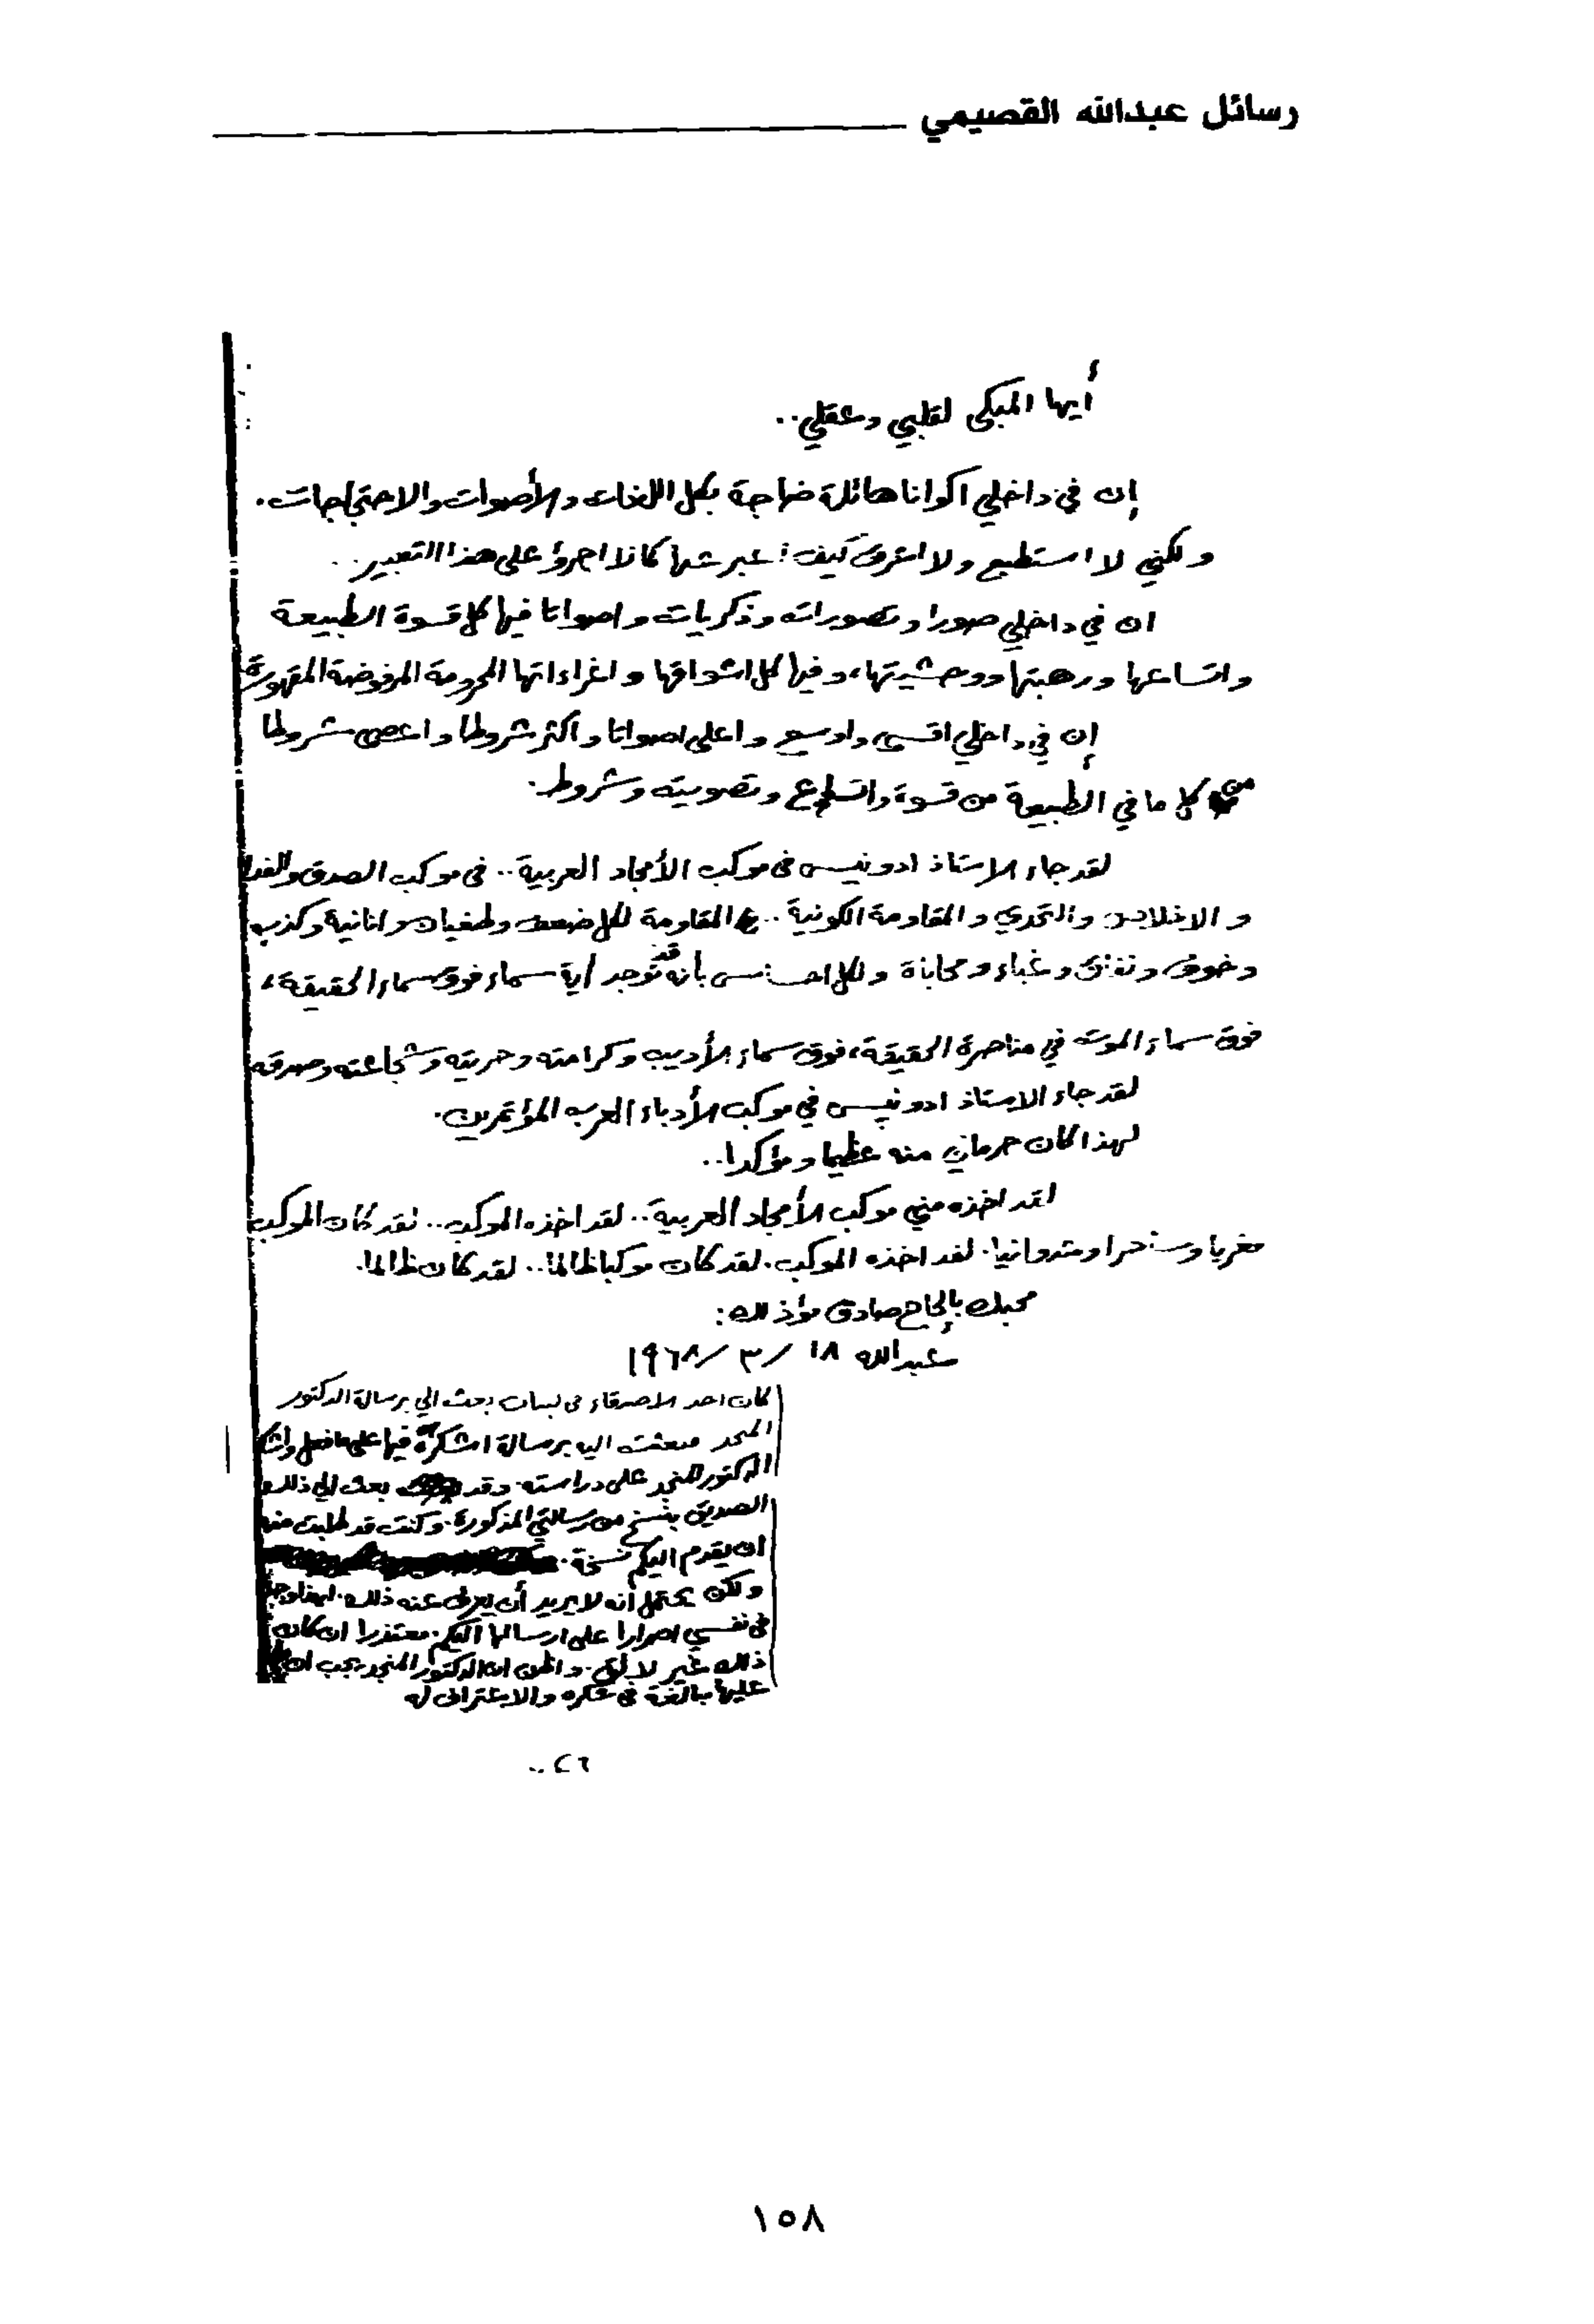 رسائل عبدالله القصيمي
أيها المبكى لقلبي وعقلي..
إن في داخلي اكوانا هائلة ضاجة بكل اللغات والأصوات والاحتجاجات.
ولكني لا استطيع ولا اعرف كيف أعبر عنها كما لا اجرؤ على هذا التعبير..
ان في داخلي صورا وتصورات وذكريات واصواتا فيها كل قسوة الطبيعة
واتساعها ورهبتها ووحشيتها، وفيها كل اشواقها واغراءاتها المحرومة المرفوضة المقهورة
إن في داخلي اقسى واوسع واعلى اصواتا واكثر شروطا واعصى شروطا
من كل ما في الطبيعة من قسوة واتساع وتصويت وشروط.
لقد جاء الاستاذ ادونيس في موكب الأمجاد العربية.. في موكب الصدق والفدا
والاخلاص والتحدي والمقاومة الكونية.. المقاومة لكل ضعف وطغيان وانانية وكذب
وخوف ونفاق وغباء ومحاباة ولكل احساس بأنه قد توجد أية سماء فوق سماء الحقيقة،
فوق سماء الموت في مناصرة الحقيقة، فوق سماء الأديب وكرامته وحريته وشجاعته وصدقه
لقد جاء الاستاذ ادونيس في موكب الأدباء العرب المؤتمرين.
لهذا كان حرماني منه عظيما ومؤكدا..
لقد اخذه مني موكب الأمجاد العربية.. لقد اخذه الموكب.. لقد كان الموكب
مغريا وساحرا وعدوانيا. لقد اخذه الموكب. لقد كان موكبا ظالما.. لقد كان ظالما.
محبك بإلحاح صادق مؤذ لك:
عبدالله ١٨ /٣ /١٩٦٨
كان احد الاصدقاء في لبنان بعث الي برسالة الدكتور
المنجد فبعثت اليه برسالة اشكره فيها على ما فعل واشكر
الدكتور المنجد على دراسته. وقد بعث الي ذلك
الصديق بنسخ من رسالتي المذكورة. وكنت قد طلبت منه
ان يقدم اليكم نسخة.
ولكن يحتمل أنه لا يريد أن يعرف عنه ذلك. لهذا وجد
في نفسي اصرارا على ارسالها اليكم. معتذرا ان كان
ذلك غير لائق. واظن ان الدكتور المنجد يجب ان
عليها مبالغة في شكره والاعتراف له
٢٦..
١٥٨